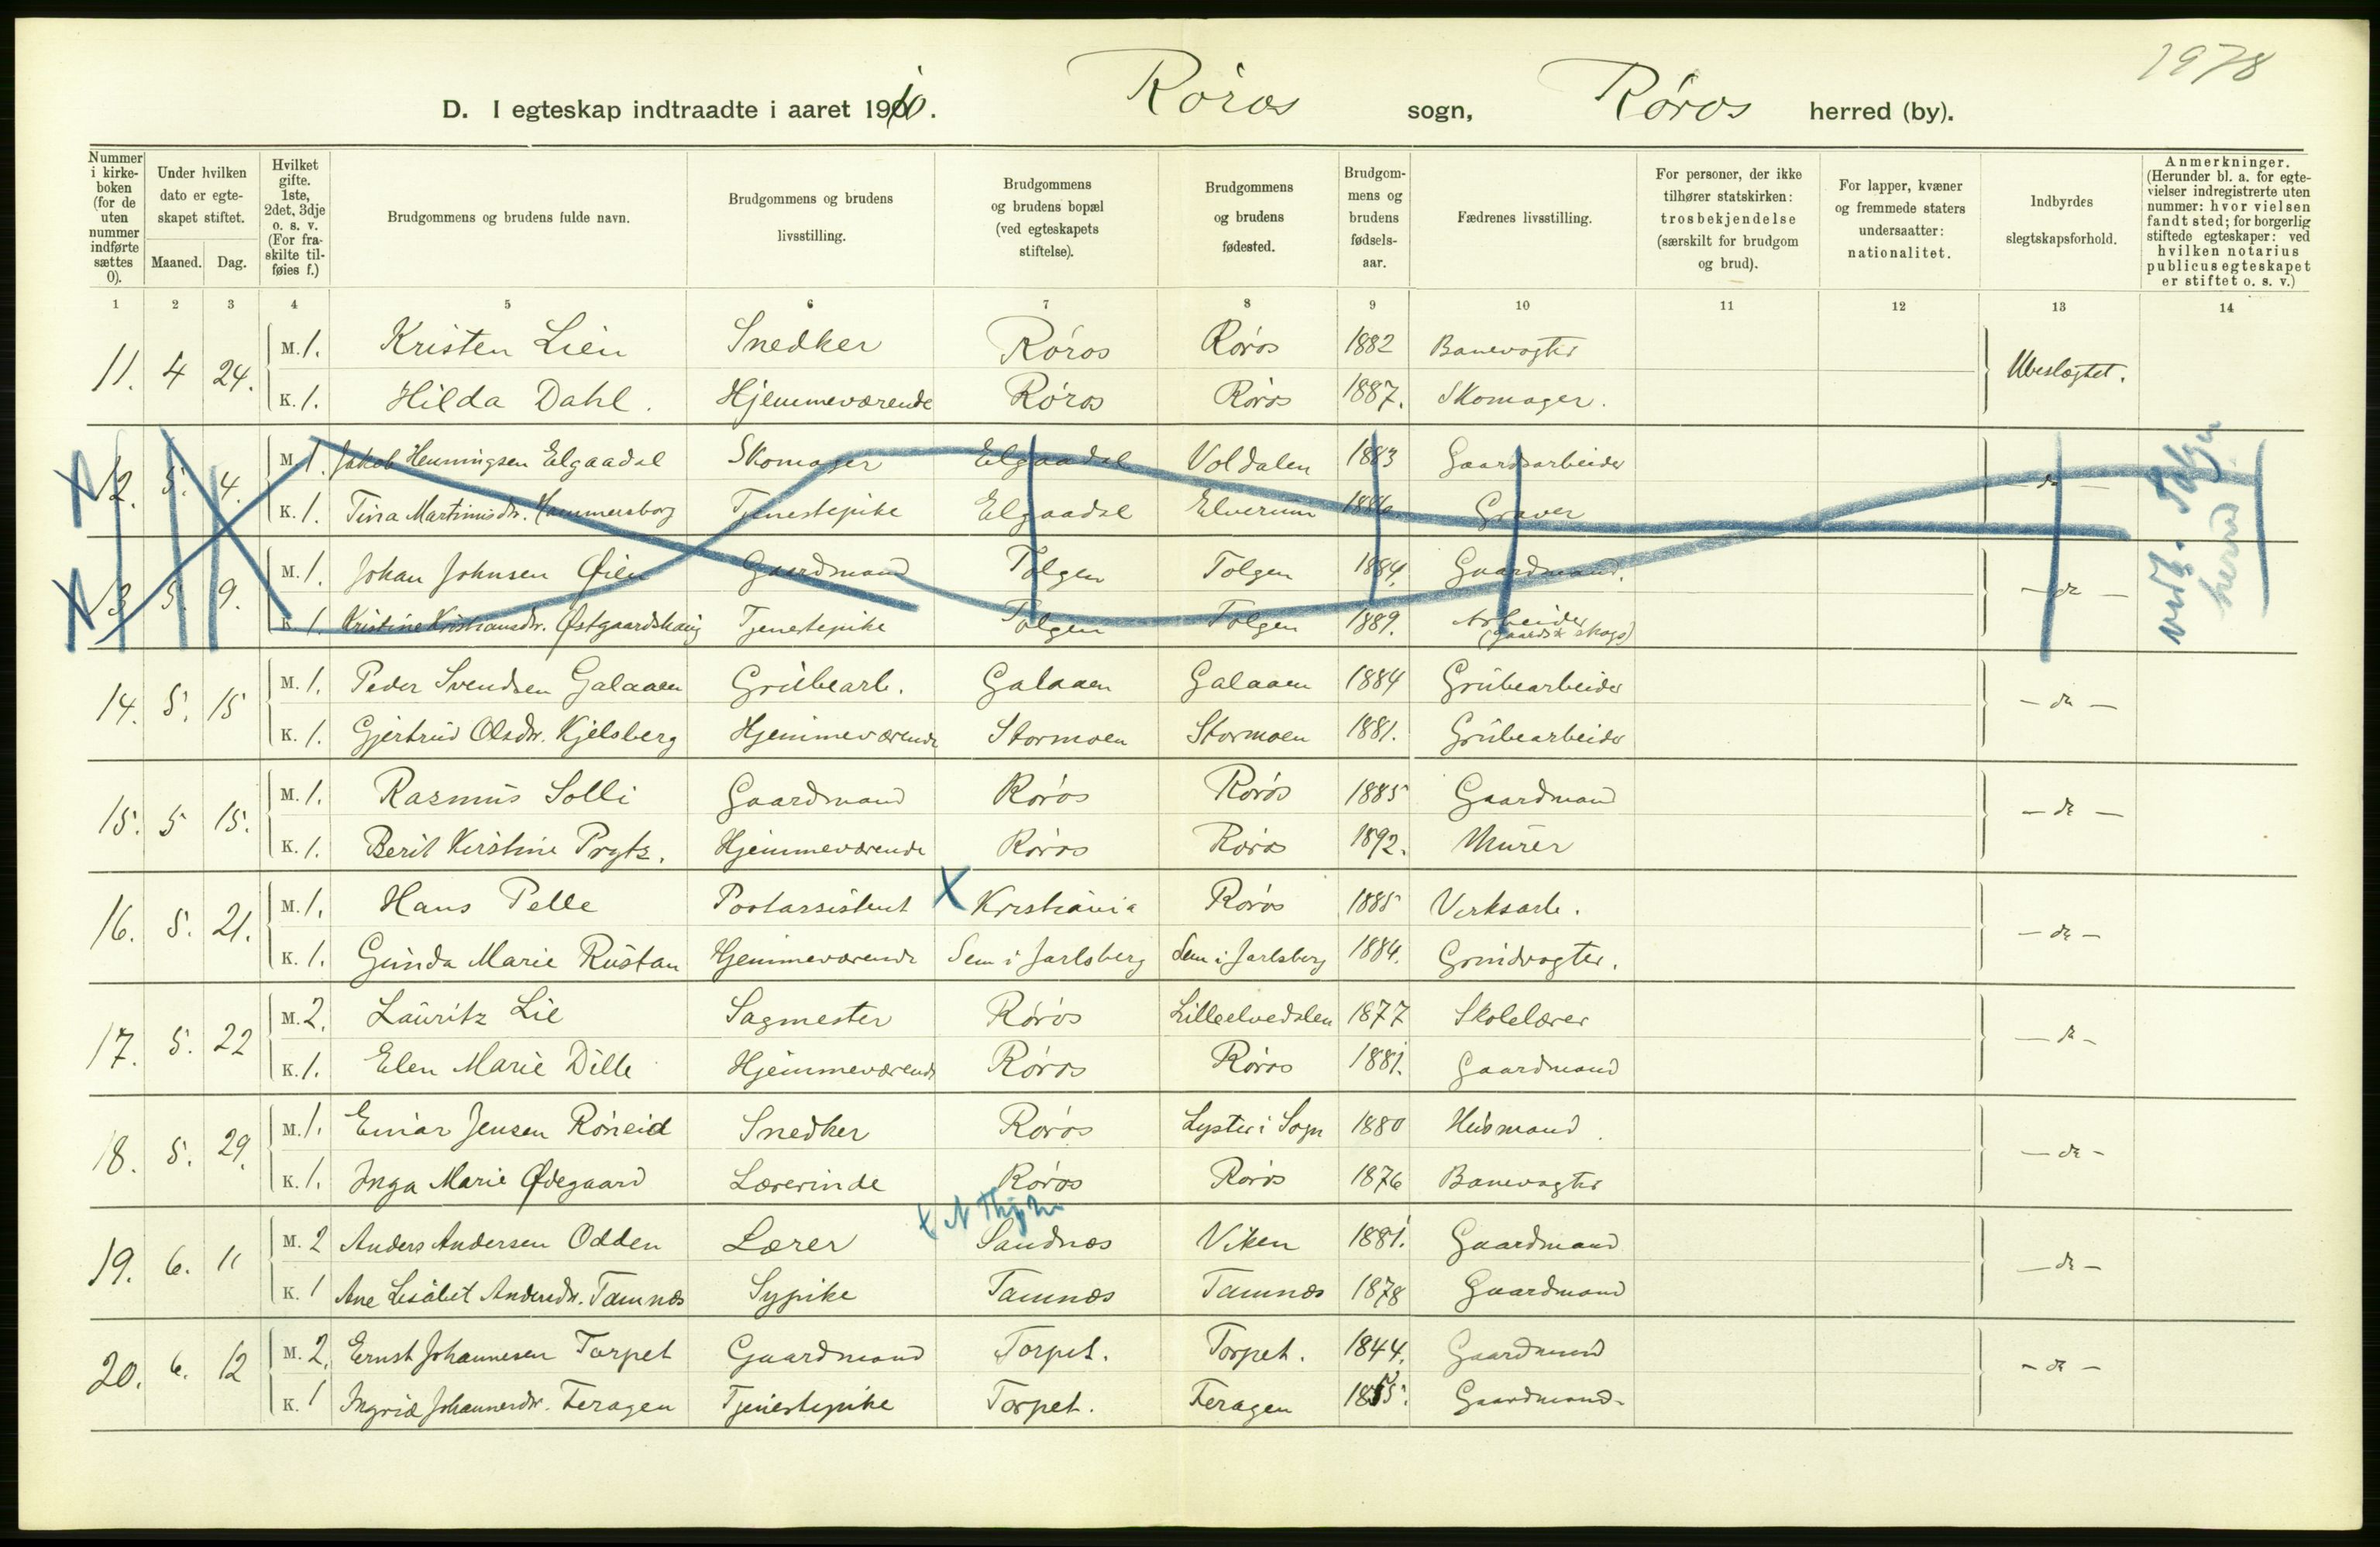 1978
D. I egteskap indtraadte i aaret 1910. Röros sogn, Røros herred (by).
Nummer i kirke-boken (for de uten nummer indførte sættes 0).
Under hvilken dato er egte-skapet stiftet.
Maaned. Dag.
Hvilket gifte. 1ste, 2det, 3dje o. s. v. (For fra-skilte til-føies f.)
Brudgommens og brudens fulde navn.
Brudgommens og brudens livsstilling.
Brudgommens og brudens bopæl (ved egteskapets stiftelse).
Brudgommens og brudens fødested.
Brudgom-mens og brudens fødsels-aar.
Fædrenes livsstilling.
For personer, der ikke tilhører statskirken: trosbekjendelse (særskilt for brudgom og brud).
For lapper, kvæner og fremmede staters undersaatter: nationalitet.
Indbyrdes slegtskapsforhold.
Anmerkninger. (Herunder bl. a. for egte-vielser indregistrerte uten nummer: hvor vielsen fandt sted; for borgerlig stiftede egteskaper: ved hvilken notarius publicus egteskapet er stiftet o. s. v.)
1 2 3 4 5 6 7 8 9 10 11 12 13 14
11. 4 24. M. 1. Kristen Lien Snedker Röros Röros 1882 Banevogter Ubeslægtet.
K. 1. Hilda Dahl. Hjemmeværende Röros Röros 1887. Skomager.
12. 5. 4. M. 1. Jakob Henningsen Elgaadal Skomager Elgaadal Voldalen 1883 Gaardsarbeider - do -
K. 1. Tina Martinusdr. Hammersborg Tjenestepike Elgaadal Elverum 1886. Graver
13 5. 9. M. 1. Johan Johnsen Øien Gaardmand Tolgen Tolgen 1884. Gaardmand. - do -
K. 1. Kristine Kristiansdr. Østgaardshaug Tjenestepike Tolgen Tolgen 1889. Arbeider (gaards & skogs)
vedk. Tolgen herred
14. 5. 15 M. 1. Peder Svendsen Galaaen Grübearb. Galaaen Galaaen 1884 Grübearbeider - do -
K. 1. Gjertrud Olsdr. Kjelsberg Hjemmeværende Stormoen Stormoen 1881. Grübearbeider
15. 5 15. M. 1. Rasmus Solli Gaardmand Röros Röros 1885 Gaardmand - do -
K. 1. Berit Kirstine Prytz. Hjemmeværende Röros Röros 1892. Murer
16. 5. 21. M. 1. Hans Pelle Postassistent X Kristiania Röros 1885 Verksarb. - do -
K. 1. Gunda Marie Rustan Hjemmeværende Sem i Jarlsberg Sem i Jarlsberg 1884. Grindvogter.
17. 5. 22 M. 2. Lauritz Lie Sagmester Röros Lilleelvedalen 1877 Skolelærer - do -
K. 1. Elen Marie Dille Hjemmeværende Röros Röros 1881. Gaardmand
18. 5. 29. M. 1. Einar Jensen Röneid Snedker Röros Lyster i Sogn 1880 Husmand. - do -
K. 1. Inga Marie Ødegaard Lærerinde Röros Röros 1876 Banevogter
19. 6. 11 M. 2 Anders Andersen Odden Lærer Sandnæs Viken 1881. Gaardmand - do -
K. 1 Ane Lisabet Andersdr. Tamnæs Sypike Tamnæs Tamnæs 1878 Gaardmand
20. 6. 12 M. 2. Ernst Johannesen Torpet Gaardmand Torpet. Torpet. 1844. Gaardmand - do -
K. 1 Ingrid Johannesdr. Feragen Tjenestepike Torpet. Feragen 1855. Gaardmand.